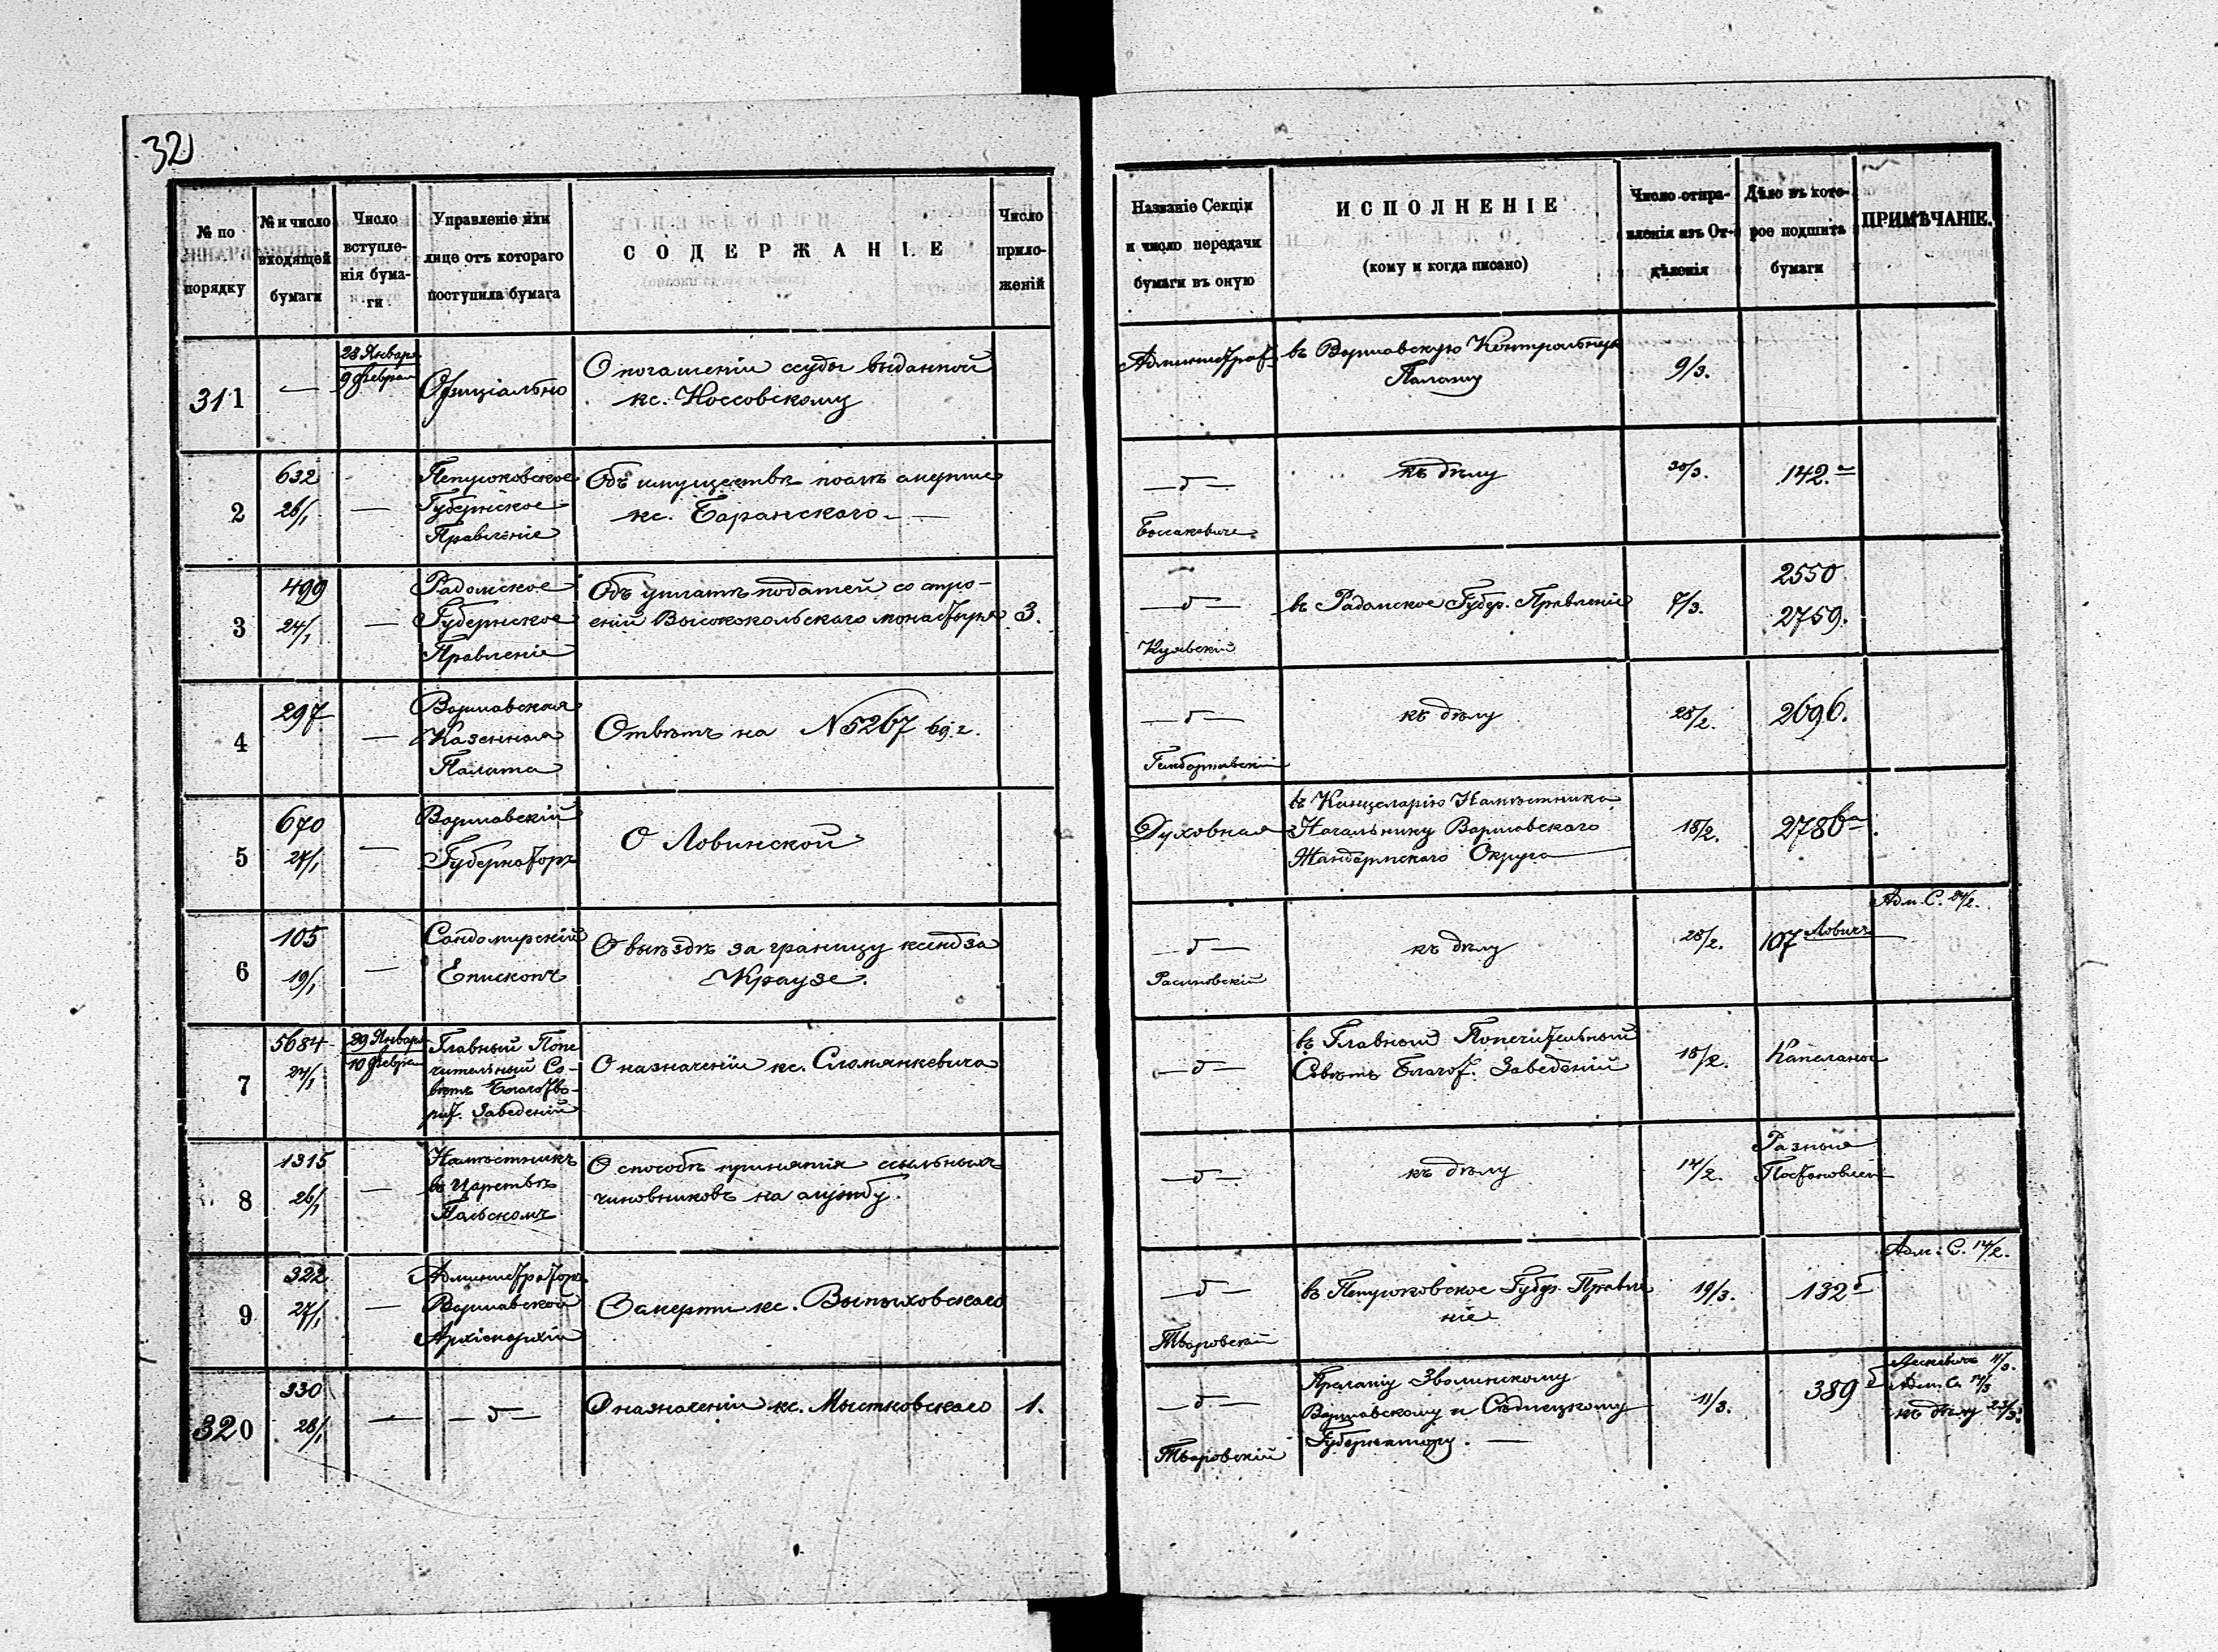 32
№ по порядку
№ и число входящей бумаги
Число вступле-
нія бума-
ги
Управленіе или
лице отъ котораго
поступила бумага
СОДЕРЖАНІЕ
Число
прило-
женій
Названіе Секціи
и число передачи
бумаги въ оную
ИСПОЛНЕНІЕ
(кому и когда писано)
Число отпра-
вленія изъ От-
дѣленія
Дѣло въ кото-
рое подшита
бумаги
ПРИМѢЧАНІЕ.
311
—
28 Января
9 Февраля
Офиціально
О погашеніи ссуды выданной
кс. Коссовскому
Администрат.
въ Варшавскую Контрольную
Палату
9/3.
2
632
26/1
—
Петроковское
Губернское
Правленіе
Объ имуществѣ послѣ смерти
кс. Баранскаго —
— д —
къ дѣлу
30/3.
142. а
3
499
24/1
—
Радомское
Губернское
Правленіе
Объ уплатѣ податей со стро-
еній Высококольскаго монастыря
3.
— д —
Куявскій
въ Радомское Губер. Правленіе
7/3.
2550
2759.
4
297
—
Варшавская
Казенная
Палата
Отвѣтъ на N 5267 69 г.
— д —
къ дѣлу
28/2.
2696.
5
670
27/1
—
Варшавскій
Губернаторъ
О Ловинской
Духовная
въ Канцелярію Намѣстника
Начальнику Варшавскаго
Жандармскаго Округа
18/2.
278
6
105
19/1
—
Сандомирскій
Епископъ
О выѣздѣ за границу ксендза
Краузе.
— д —
къ дѣлу
28/2.
107 Ловичъ
Адм. С. 24/2.
7
5684
24/1
29 Января
10 Февраля
Главный Попе
чительный Со-
вѣтъ Благотво-
рит. Заведеній
О назначеніи кс. Сломянкевича
— д —
въ Главный Попечительный
Совѣтъ Благот. Заведеній
18/2.
Капеланы
8
1315
26/1
—
Намѣстникъ
въ Царствѣ
Польскомъ
О способѣ принятія ссыльныхъ
чиновниковъ на службу.
— д —
къ дѣлу
14/2.
Разныя
Постановлен
9
322
27/1
—
Администраторъ
Варшавской
Архіепархіи
О смерти кс. Выпыховскаго
— д —
Творовскій
въ Петроковское Губер. Правле
ніе
19/3.
132 б
Адм. С. 14/2.
320
330
28/1
—
— д —
О назначеніи кс. Мыстковскаго
1.
— д —
Творовскій
Прелату Зволинскому
Варшавскому и Сѣдлецкому
Губернатору. —
11/3.
389 б
11/3.
Адм. С. 14/3
къ дѣлу 23/3.